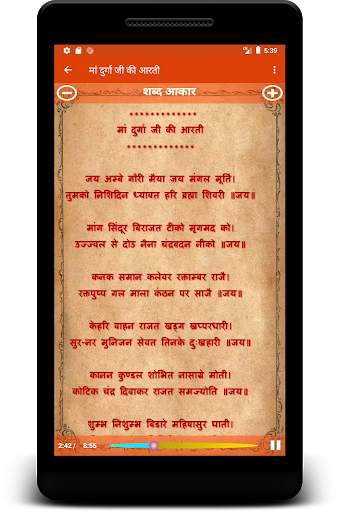 5:39
मां दुर्गा जी की आरती
शब्द आकार
*************
मां दुर्गा जी की आरती
*************
जय अम्बे गौरी मैया जय मंगल मूर्ति।
तुमको निशिदिन ध्यावत हरि ब्रह्मा शिवरी ॥जय॥
मांग सिंदूर बिराजत टीको मृगमद को।
उज्ज्वल से दोउ नैना चंद्रबदन नीको ॥जय॥
कनक समान कलेवर रक्ताम्बर राजै।
रक्तपुष्प गल माला कंठन पर साजै ॥जय॥
केहरि वाहन राजत खड्ग खप्परधारी।
सुर-नर मुनिजन सेवत तिनके दुःखहारी ॥जय॥
कानन कुण्डल शोभित नासाग्रे मोती।
कोटिक चंद्र दिवाकर राजत समज्योति ॥जय॥
शुम्भ निशुम्भ बिडारे महिषासुर घाती।
2:42 / 8:55